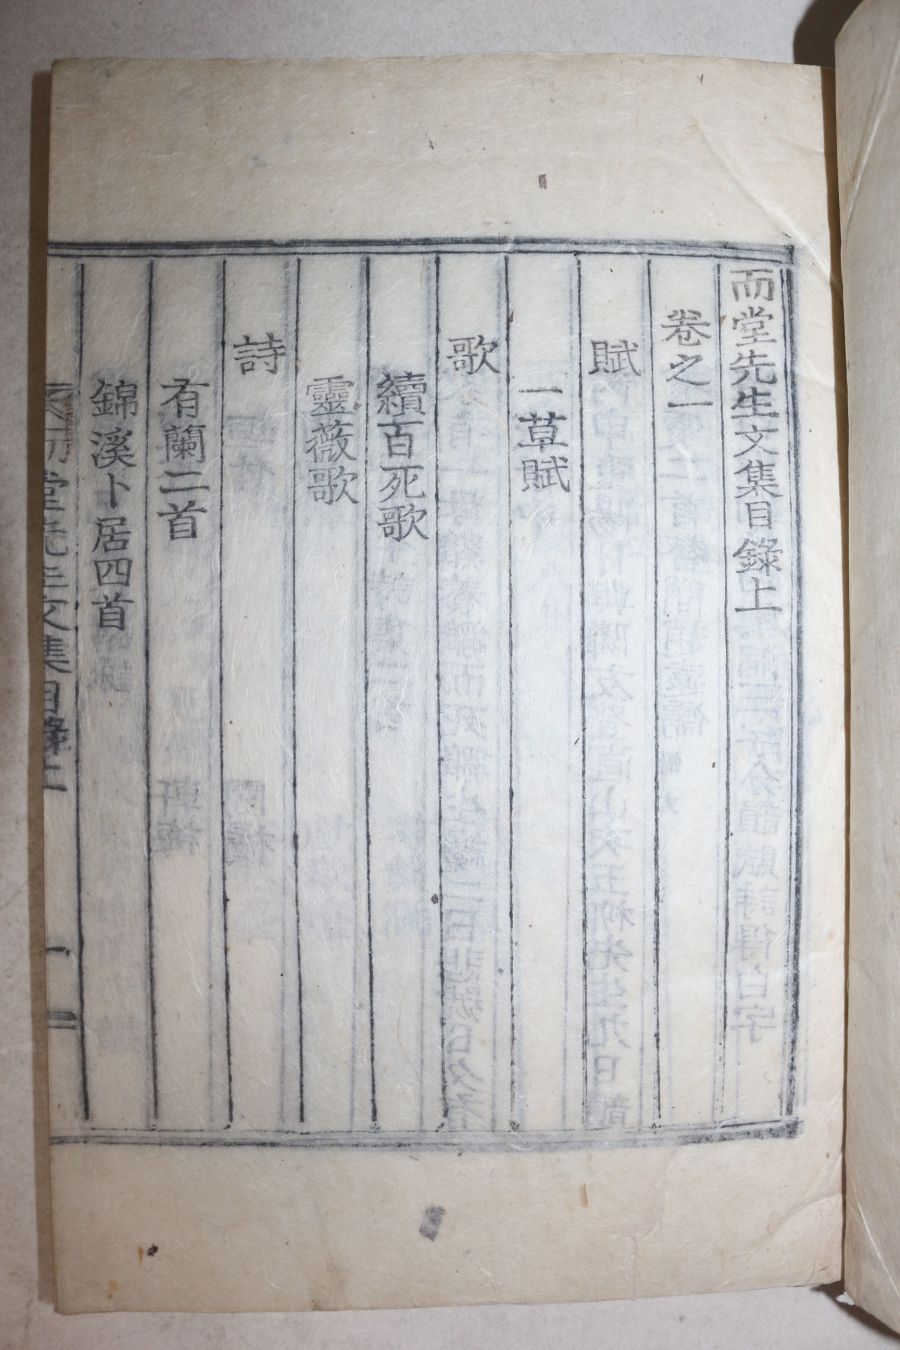 而堂先生文集目錄上
卷之一
賦
一草賦
歌
續百死歌
靈薇歌
詩
有蘭二首
錦溪卜居四首
堂先生文集目錄上
一